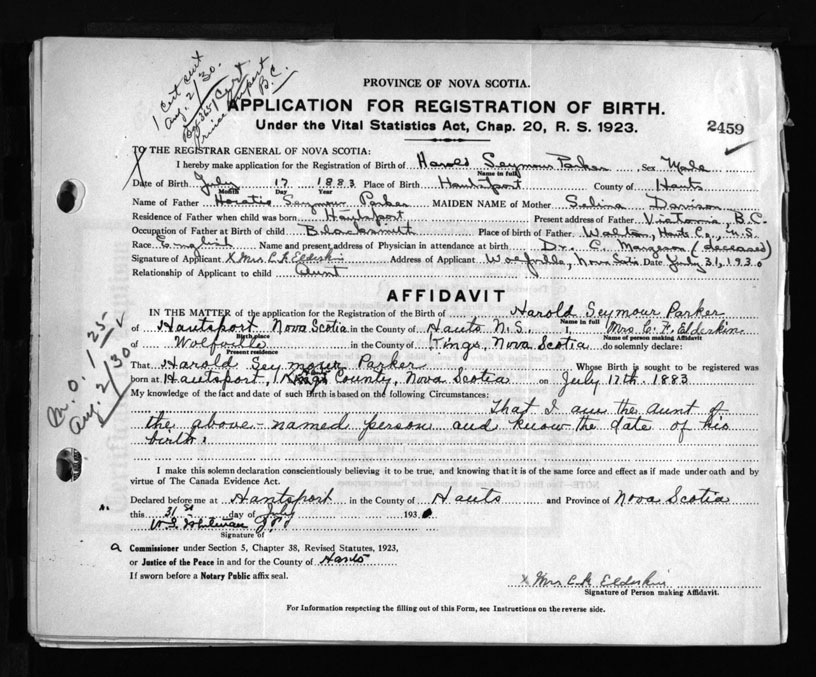 1 Cert sent
Aug. 2/30.
Box 365 / Cert
Prince Rupert
B.C.
PROVINCE OF NOVA SCOTIA.
APPLICATION FOR REGISTRATION OF BIRTH.
Under the Vital Statistics Act, Chap. 20, R. S. 1923.
2459
TO THE REGISTRAR GENERAL OF NOVA SCOTIA:
I hereby make application for the Registration of Birth of Harold Seymour Parker Sex Male
Name in full
Date of Birth July 17 1883 Place of Birth Hantsport County of Hants
Month Day Year
Name of Father Horatio Seymour Parker MAIDEN NAME of Mother Selina Davison
Residence of Father when child was born Hantsport Present address of Father Victoria, B.C.
Occupation of Father at Birth of child Blacksmith Place of birth of Father Walton, Hants Co., N.S.
Race English Name and present address of Physician in attendance at birth Dr. C. Margeson (deceased)
Signature of Applicant X Mrs C. F. Elderkin Address of Applicant Wolfville, Nova Scotia Date July 31, 1930
Relationship of Applicant to child Aunt
AFFIDAVIT
IN THE MATTER of the application for the Registration of the Birth of Harold Seymour Parker
Name in full
of Hantsport Nova Scotia in the County of Hants N.S. I, Mrs C. F. Elderkin
Birth place Name of person making Affidavit
of Wolfville in the County of Kings, Nova Scotia do solemnly declare:
Present residence
That Harold Seymour Parker Whose Birth is sought to be registered was
born at Hantsport, Kings Hants County, Nova Scotia on July 17th. 1883
My knowledge of the fact and date of such Birth is based on the following Circumstances:
That I am the aunt of
the above-named person and know the date of his
birth.
M.O. 1.25
Aug. 2/30
I make this solemn declaration conscientiously believing it to be true, and knowing that it is of the same force and effect as if made under oath and by
virtue of The Canada Evidence Act.
Declared before me at Hantsport in the County of Hants and Province of Nova Scotia
this 31st day of July 1930
Whitman J.P.
Signature of
a Commissioner under Section 5, Chapter 38, Revised Statutes, 1923,
or Justice of the Peace in and for the County of Hants
If sworn before a Notary Public affix seal.
x Mrs C. F. Elderkin
Signature of Person making Affidavit.
For Information respecting the filling out of this Form, see Instructions on the reverse side.